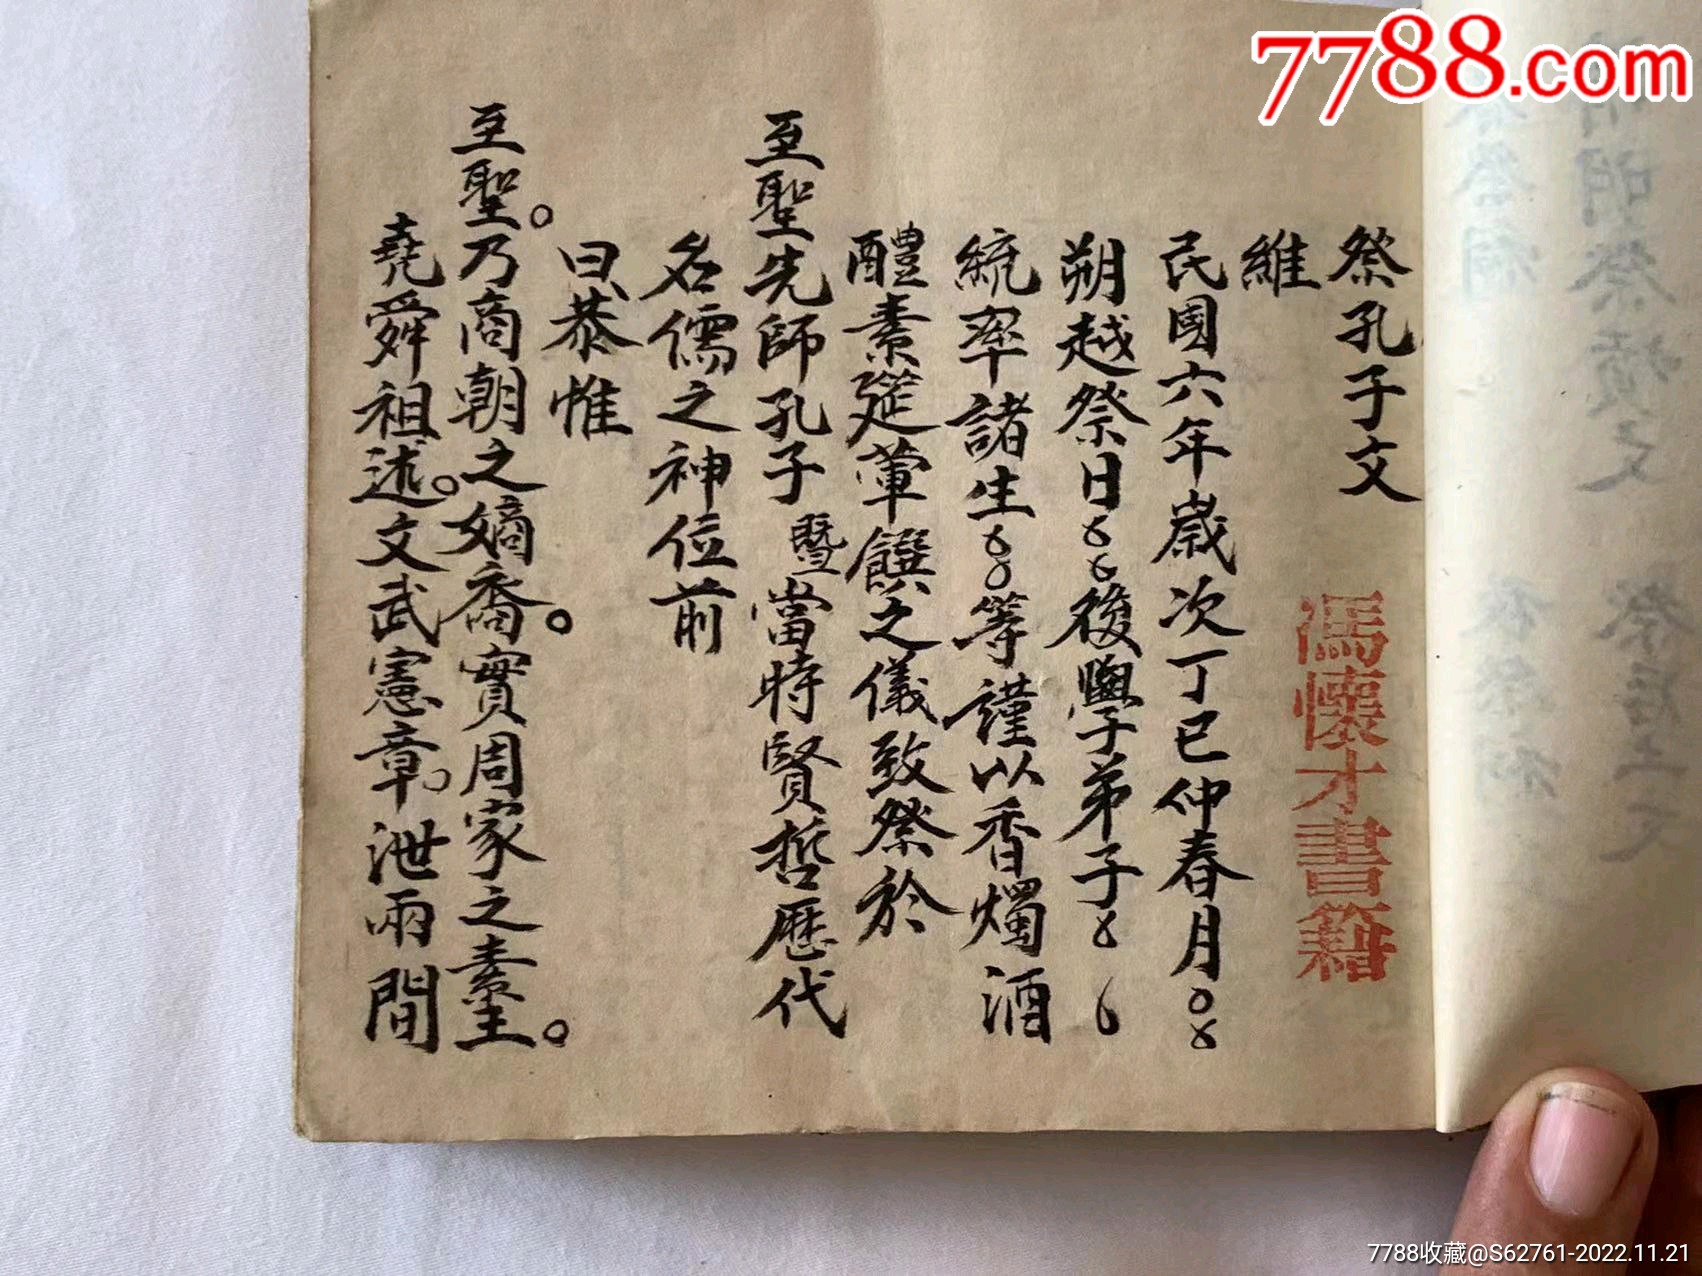 祭孔子文
馮懷才書籍
維
民國六年歲次丁巳仲春月
朔越祭日後學弟子
統率諸生等謹以香燭酒
醴素筵葷饌之儀致祭於
至聖先師孔子暨當時賢哲歷代
名儒之神位前
曰恭惟
至聖。乃商朝之嫡裔。實周家之素王。
堯舜祖述。文武憲章。泄兩間
7788.com
7788收藏@S62761-2022.11.21